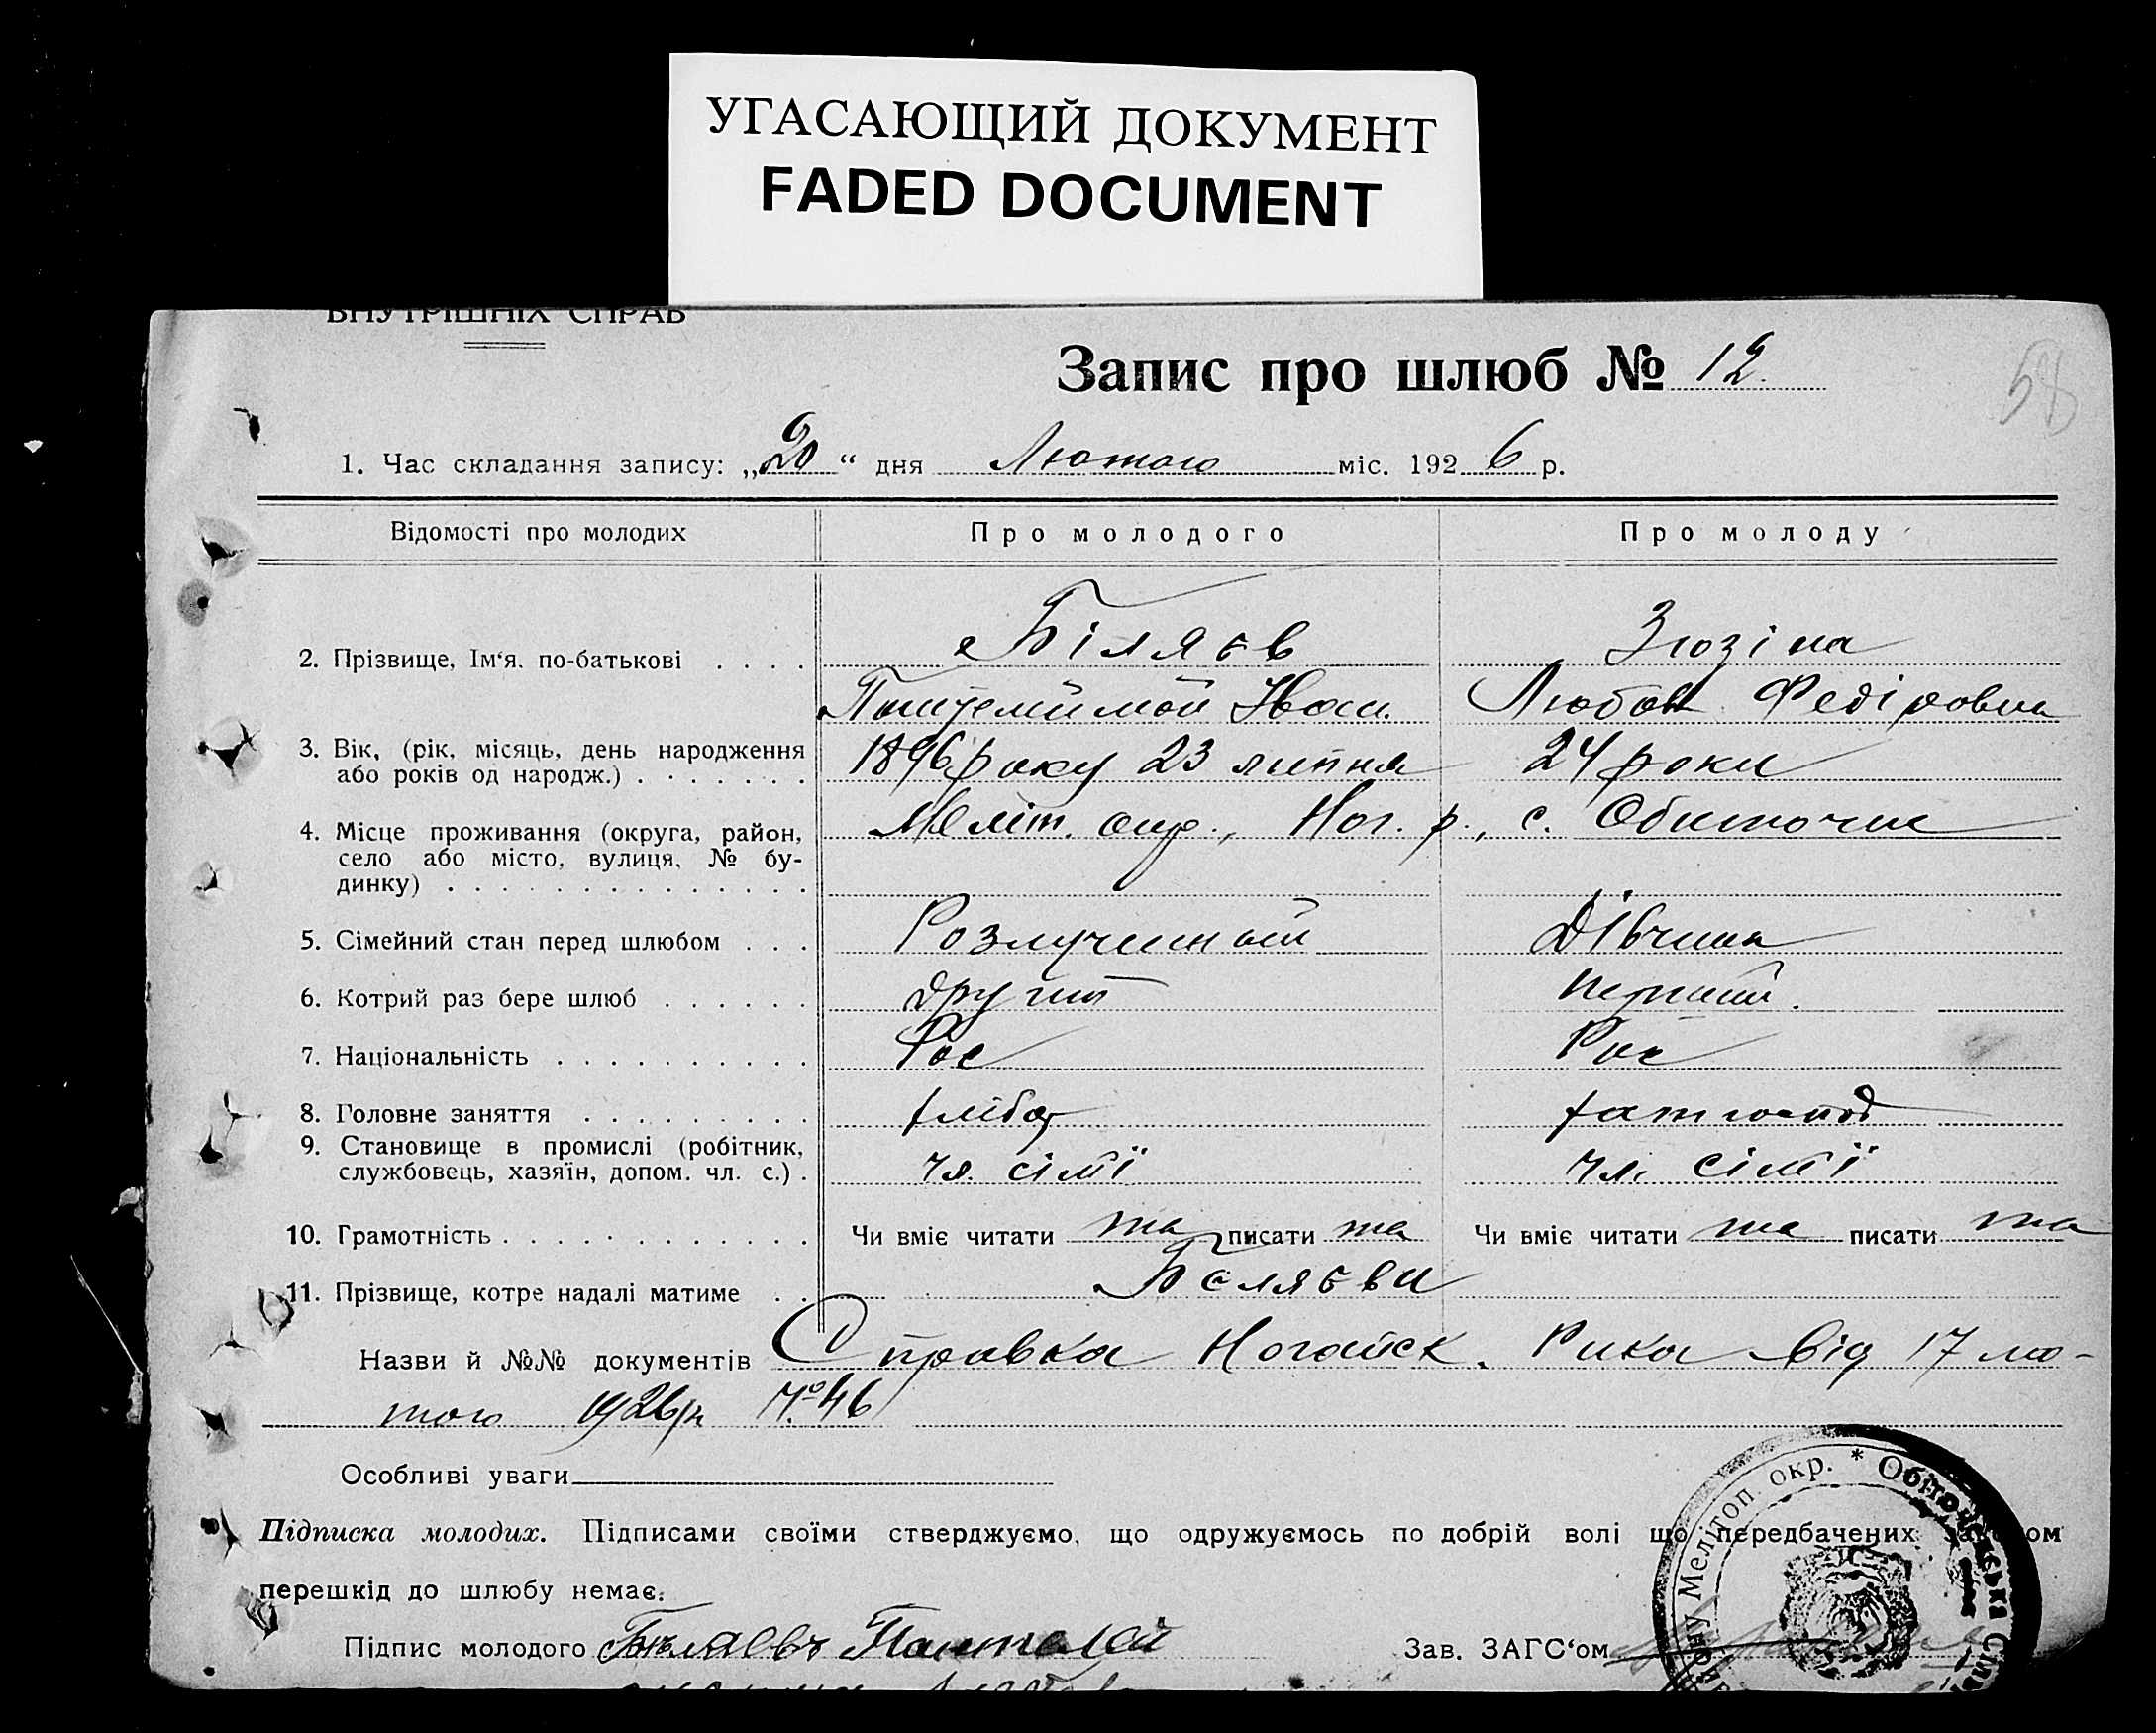 УГАСАЮЩИЙ ДОКУМЕНТ
FADED DOCUMENT
ВНУТРІШНІХ СПРАВ
Запис про шлюб № 12.
58
1. Час складання запису: „20“ дня Лютого міс. 1926 р.
Відомості про молодих Про молодого Про молоду
2. Прізвище, Ім‘я, по-батькові . . . . Біляєв Зюзіна
Іван. Любов Федіровна
3. Вік, (рік, місяць, день народження 1896 року 23 липня 24 роки
або років од народж.) . . . . . . .
4. Місце проживання (округа, район, Меліт. окр., Ног. р., с. Обиточне
село або місто, вулиця, № бу-
динку) . . . . . . . . . . . . . .
5. Сімейний стан перед шлюбом . . . Розлучинный Дівчина
6. Котрий раз бере шлюб . . . . . . другий перший.
7. Національність . . . . . . . . . . Рос Рос
8. Головне заняття . . . . . . . . . хлібор хат господ
9. Становище в промислі (робітник,
службовець, хазяїн, допом. чл. с.) . чл. сімї чл. сімї
10. Грамотність . . . . . . . . . . . . Чи вміє читати та писати та Чи вміє читати та писати та
11. Прізвище, котре надалі матиме . . Беляєви
Назви й №№ документів Справка Ногайск. Рика від 17 лю-
того 1926 р № 46
Особливі уваги
Підписка молодих. Підписами своїми стверджуємо, що одружуємось по добрій волі що передбачених законом
перешкід до шлюбу немає.
Підпис молодого Бѣляевъ Пантелей Зав. ЗАГС‘ом
Мелітоп. окр. * Обіточенська Сіль